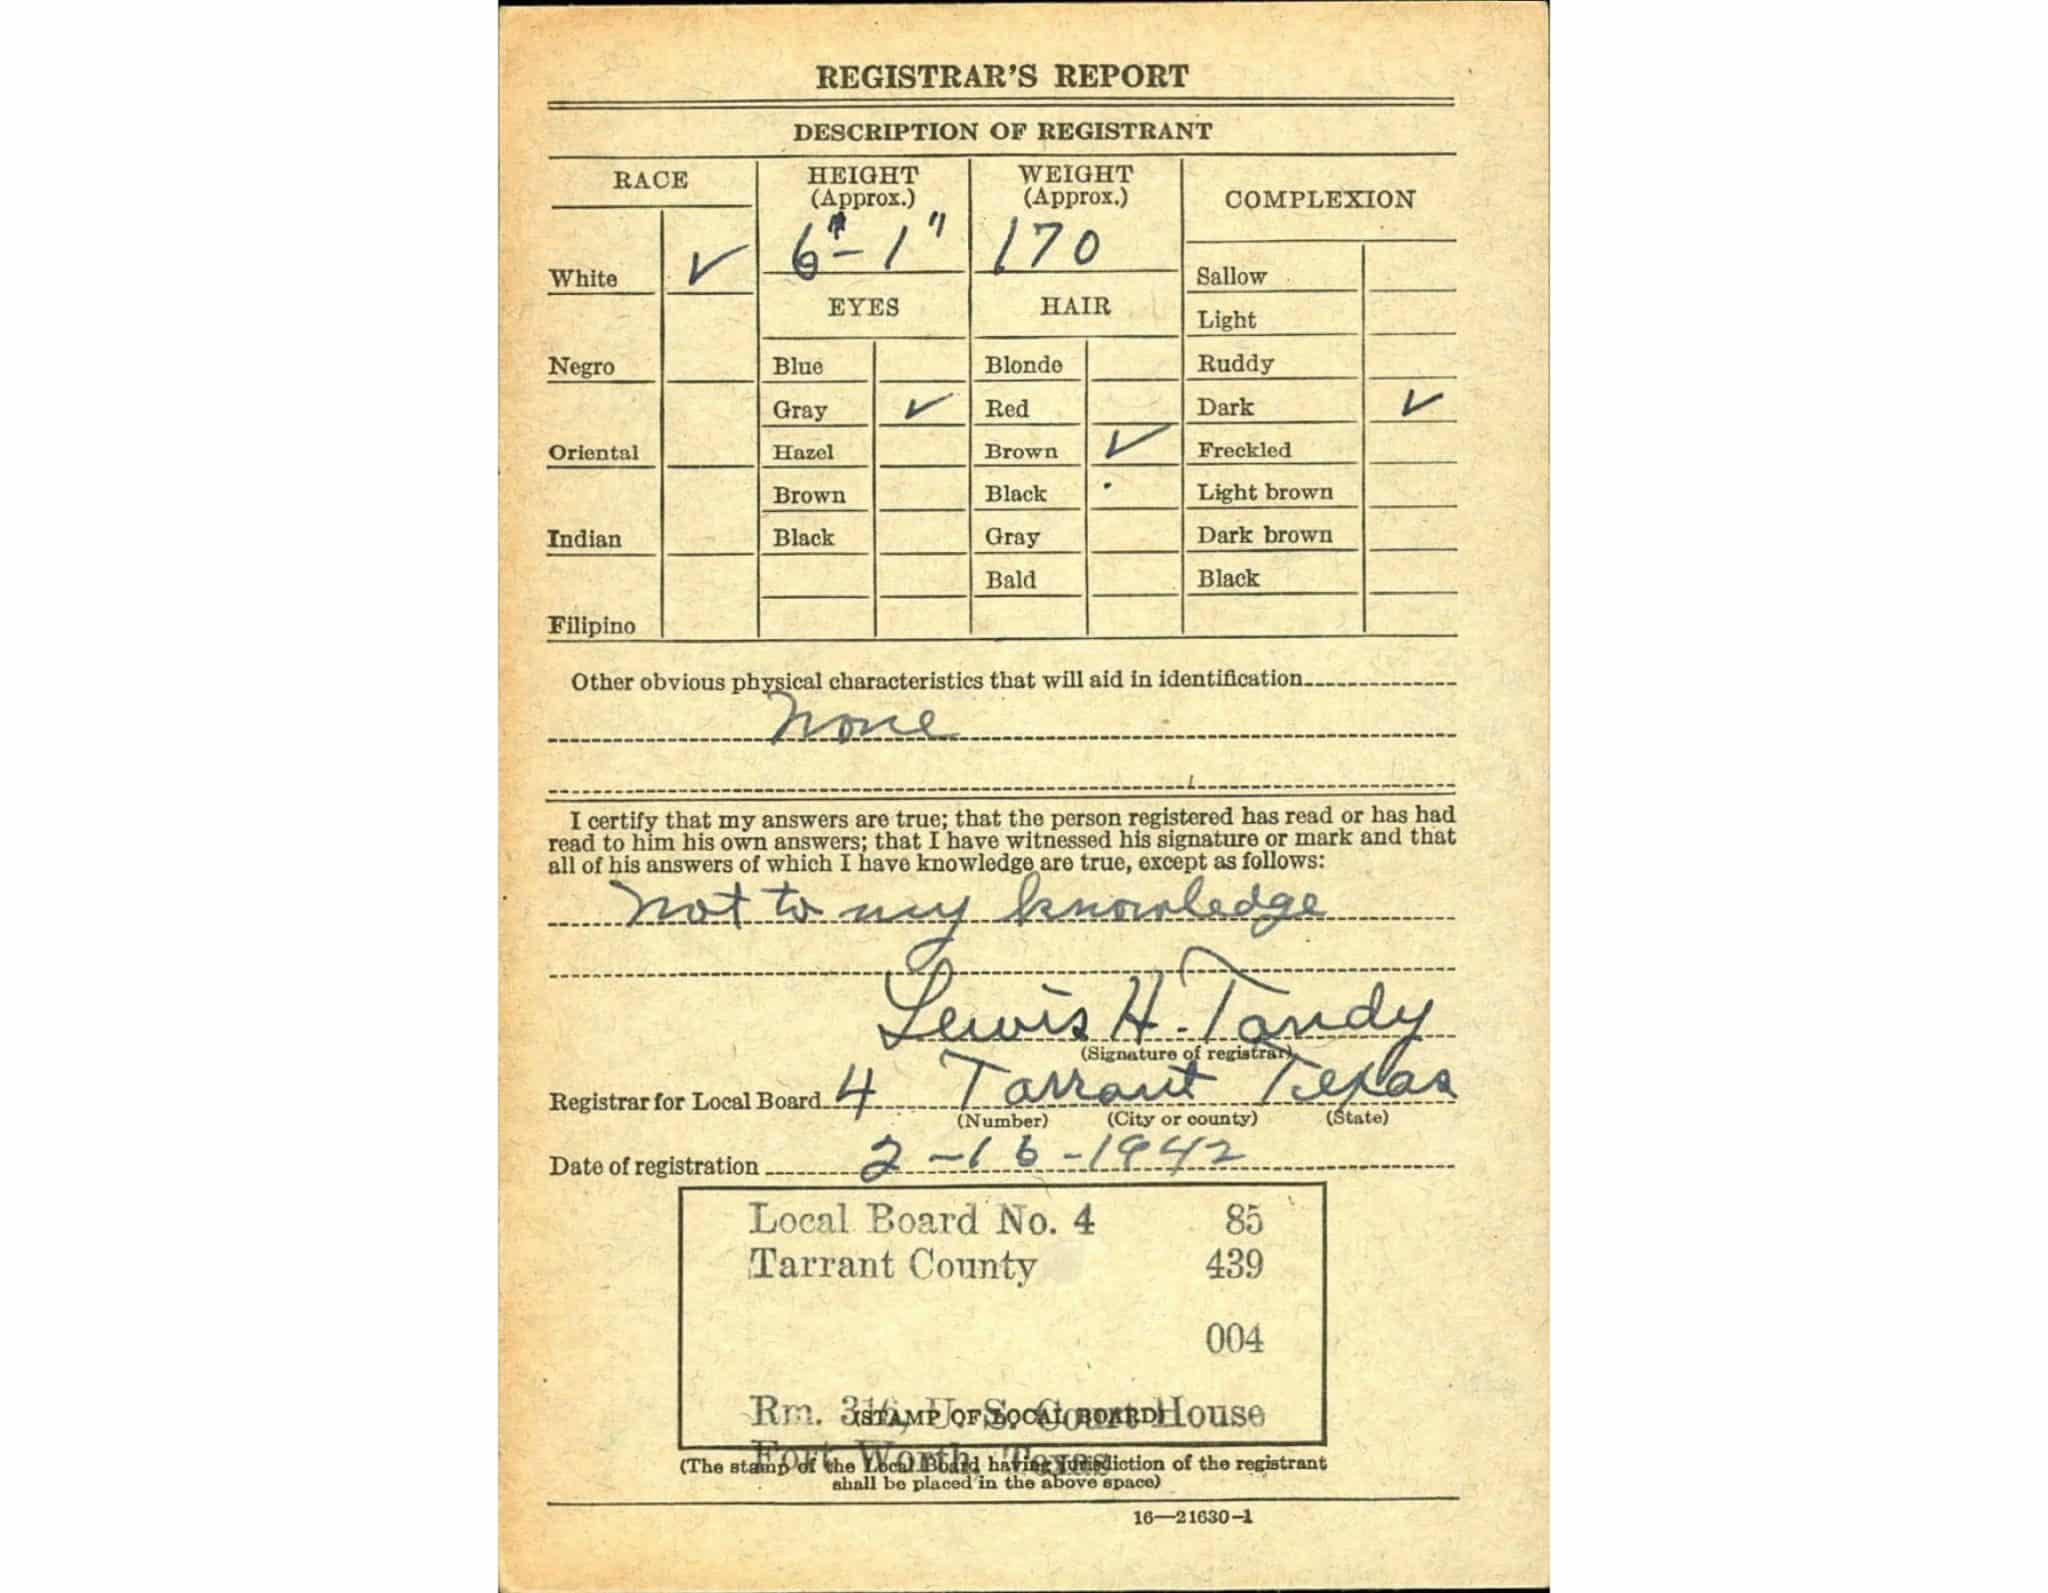 REGISTRAR'S REPORT
DESCRIPTION OF REGISTRANT
RACE
HEIGHT
(Approx.)
WEIGHT
(Approx.)
COMPLEXION
6'-1"
170
White ✓
Sallow
EYES
HAIR
Light
Negro
Blue
Blonde
Ruddy
Gray ✓
Red
Dark ✓
Oriental
Hazel
Brown ✓
Freckled
Brown
Black
Light brown
Indian
Black
Gray
Dark brown
Bald
Black
Filipino
Other obvious physical characteristics that will aid in identification
None
I certify that my answers are true; that the person registered has read or has had
read to him his own answers; that I have witnessed his signature or mark and that
all of his answers of which I have knowledge are true, except as follows:
Not to my knowledge
Lewis H. Tandy
(Signature of registrar)
Registrar for Local Board 4 Tarrant Texas
(Number) (City or county) (State)
Date of registration 2-16-1942
Local Board No. 4 85
Tarrant County 439
004
Rm. U. S. Court House
(STAMP OF LOCAL BOARD)
Fort Worth, Texas
(The stamp of the Local Board having jurisdiction of the registrant
shall be placed in the above space)
16—21630-1